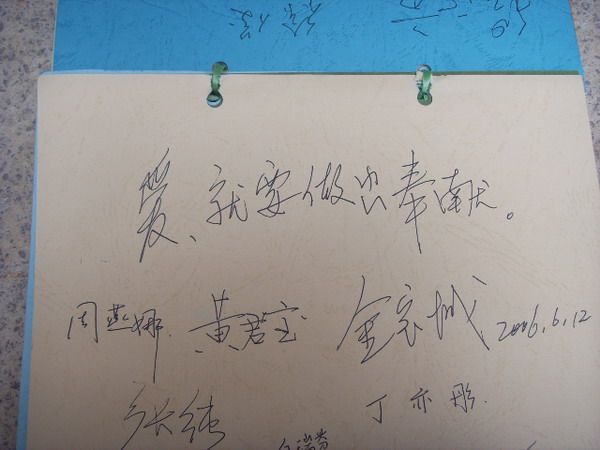 爱、就要做出奉献。
周燕娜 黄君宝 金家城 2006.6.12
张纯 丁亦彤.